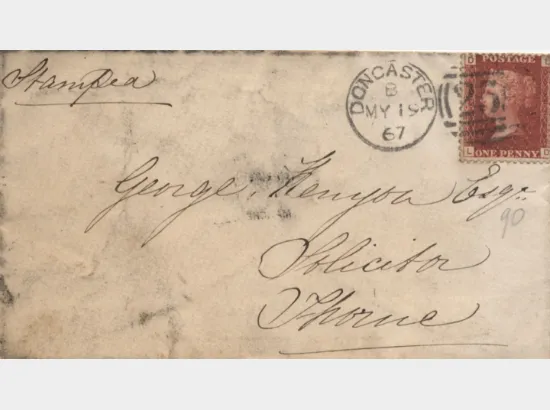 Stamped
DONCASTER
B
MY 19
67
O O
POSTAGE
ONE PENNY
L
George Kenyon Esqr.
90
Solicitor
Thorne